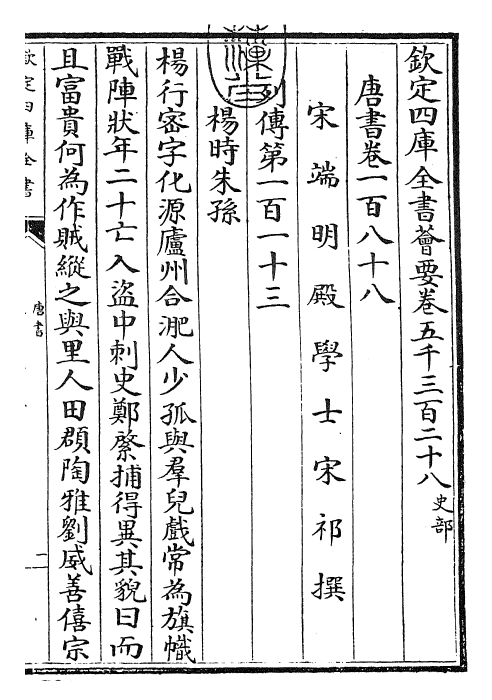 欽定四庫全書薈要卷五千三百二十八史部
唐書卷一百八十八
宋端明殿學士宋祁撰
列傳第一百一十三
楊時朱孫
楊行宻字化源廬州合淝人少孤與羣兒戲常為旗幟
戰陣狀年二十亡入盜中刺史鄭綮捕得異其貌曰而
且富貴何為作賊縱之與里人田頵陶雅劉威善僖宗
欽定四庫全書
唐書